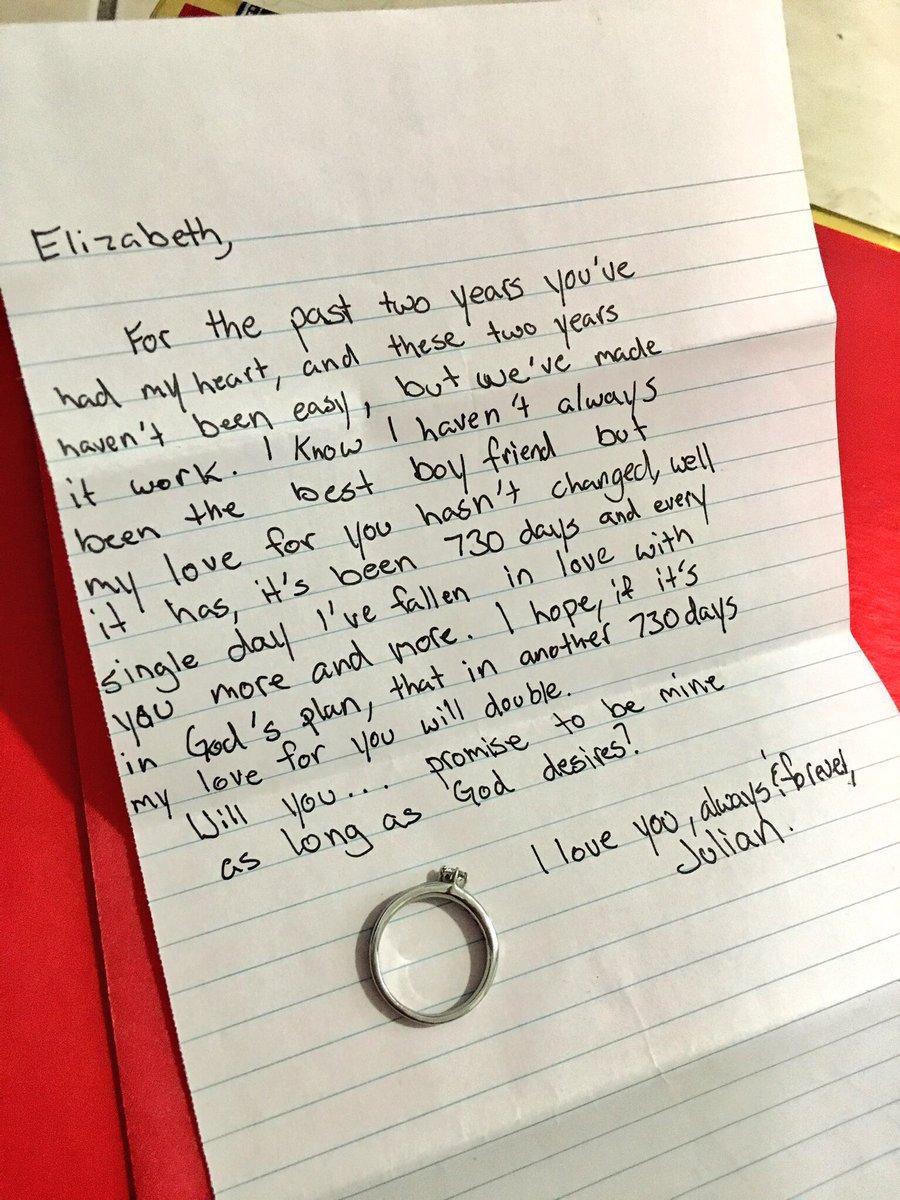 Elizabeth,
For the past two years you've
had my heart, and these two years
haven't been easy, but we've made
it work. I know I haven't always
been the best boy friend but
my love for you hasn't changed, well
it has, it's been 730 days and every
single day I've fallen in love with
you more and more. I hope, if it's
in God's plan, that in another 730 days
my love for you will double.
Will you... promise to be mine
as long as God desires?
I love you, always & forever,
Julian.